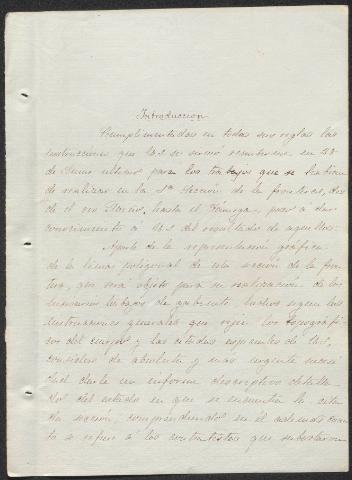 Introduccion
Cumplimentadas en todas sus reglas las
instrucciones que V.S. se sirvió remitirme en 28
de Junio último para los trabajos que se habian
de realizar en la 5ª Sección de la frontera, des
de el rio hasta el paso á dar
conocimiento á V.S. del resultado de aquellos.
Aparte de la representación gráfica
de la linea poligonal de esta sección de la fron
tera, que será objeto para su realización de los
necesarios trabajos de gabinete, hechos segun las
instrucciones generales que rigen los topográfi
cos del cuerpo y las citadas especiales de V.S.,
considero de absoluta y mas urgente necesi
dad darle un informe descriptivo detalla
do del estado en que se encuentra la cita
da sección, comprendiendo en él cuan
to se refiere á los que